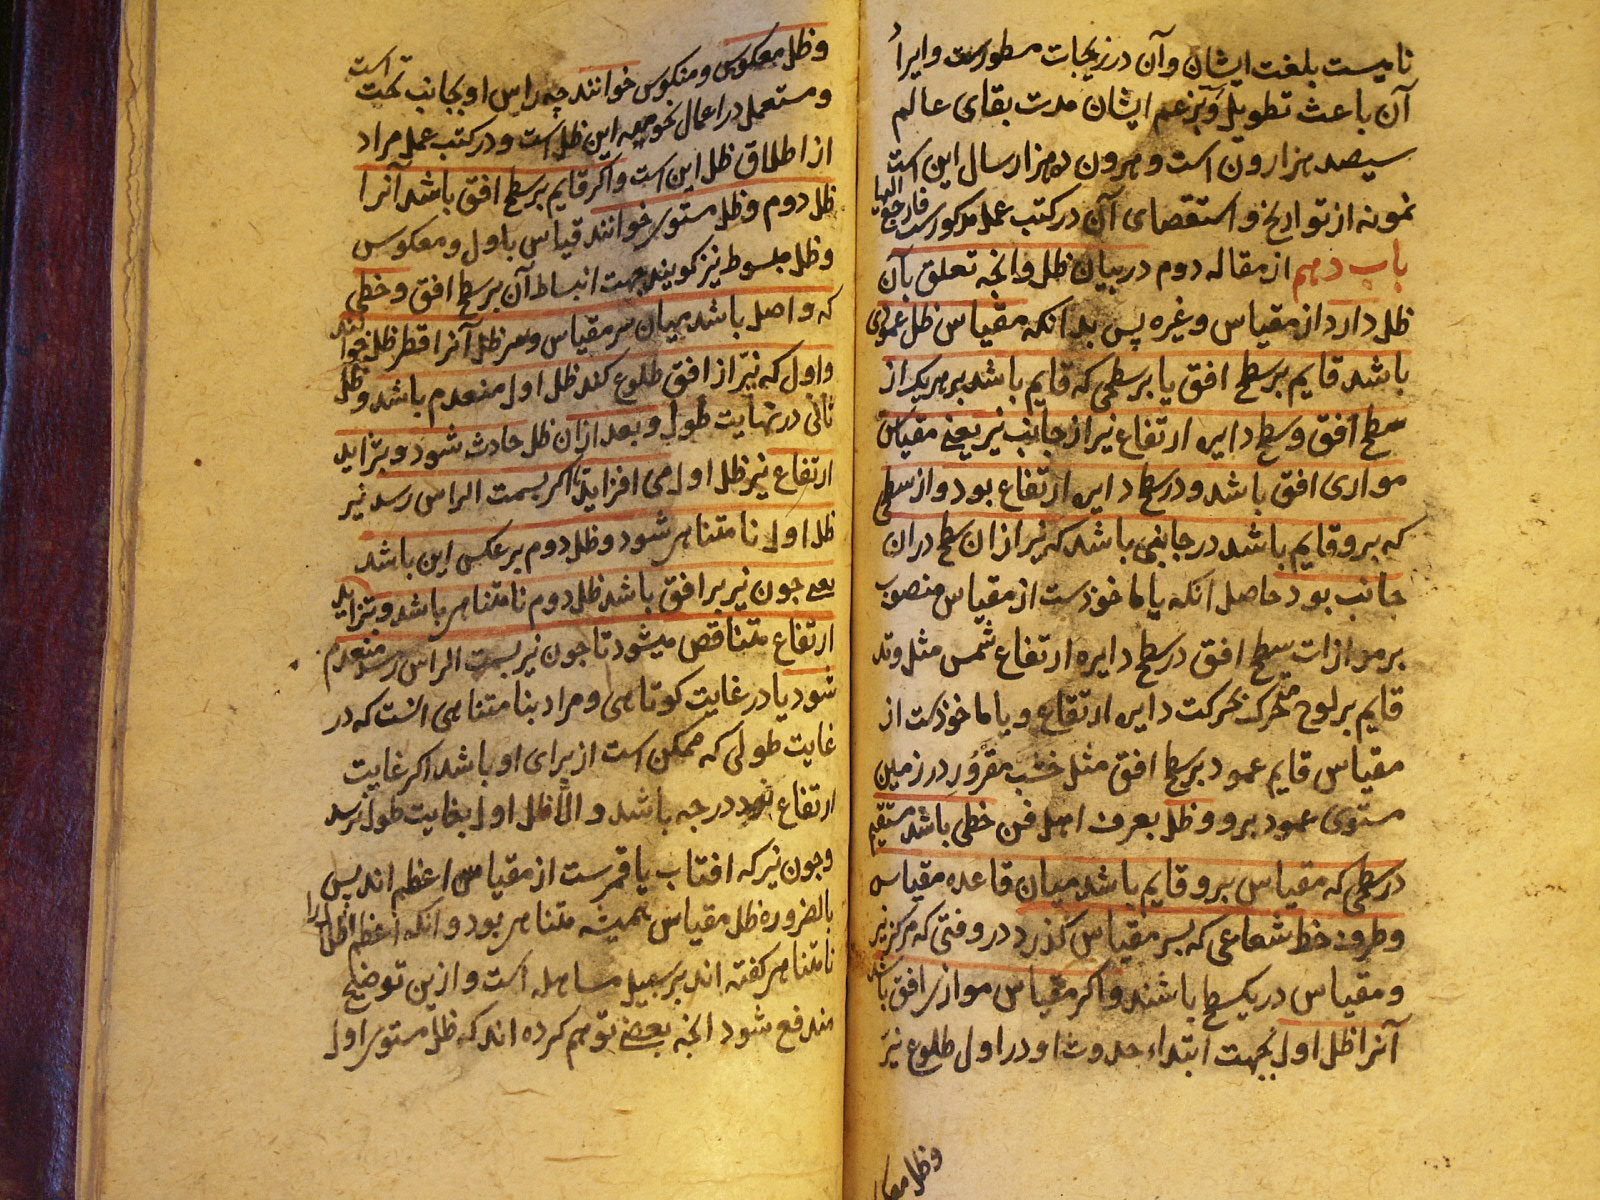 نامیست بلغت ایشان و آن در زیجات مسطورست و ایراد
آن باعث تطویل و بزعم ایشان مدت بقای عالم
سیصد هزار ون است و هر ون ده هزار سال این است
نمونه از تواریخ و استقصای آن در کتب عمل مذکورست فارجع الیها
باب دهم از مقاله دوم در بیان ظل و انچه تعلق بآن
ظل دارد از مقیاس و غیره پس بدانکه مقیاس ظل عمودی
باشد قایم بر سطح افق یا بر سطحی که قایم باشد بر هر یک از
سطح افق و سطح دایره ارتفاع نیر از جانب نیر یعنی مقیاس
موازی افق باشد و در سطح دایره ارتفاع بود و از سطح
که برو قایم باشد در جانبی باشد که نیر ازان سطح دران
جانب بود حاصل انکه یا ماخوذست از مقیاس منصوب
بر موازات سطح افق در سطح دایره ارتفاع شمس مثل وتد
قایم بر لوح متحرک بحرکت دایره ارتفاع و یا ماخوذست از
مقیاس قایم عمود بر سطح افق مثل خشب مقرور در زمین
مستوی عمود برو و ظل بعرف اهل فن خطی باشد مستقیم
در سطحی که مقیاس برو قایم باشد میان قاعده مقیاس
و طرف خط شعاعی که بسر مقیاس گذرد در وقتی که مرکز نیر
و مقیاس در یکسطح باشند و اکر مقیاس موازی افق باشد
آنرا ظل اول بجهت ابتداء حدوث او در اول طلوع نیر
وظل معکوس
و ظل معکوس و منکوس خوانند چه راس او بجانب تحت است
و مستعمل در اعمال نجومیه این ظل است و در کتب عمل مراد
از اطلاق ظل این است و اکر قایم بر سطح افق باشد آنرا
ظل دوم و ظل مستوی خوانند قیاس باول و معکوس
و ظل مبسوط نیز کویند بجهت انبساط آن بر سطح افق و خطی
که واصل باشد میان سر مقیاس و سر ظل آنرا قطر ظل خوانند
و اول که نیر از افق طلوع کند ظل اول منعدم باشد و ظل
ثانی در نهایت طول و بعد ازان ظل حادث شود و بتزاید
ارتفاع نیر ظل اول می افزاید تا اکر بسمت الراس رسد نیر
ظل اول نامتناهی شود و ظل دوم بر عکس این باشد
یعنی چون نیر بر افق باشد ظل دوم نامتناهی باشد و بتزاید
ارتفاع متناقص میشود تا چون نیر بسمت الراس رسد منعدم
شود یا در غایت کوتاهی و مراد بنامتناهی انست که در
غایت طولی که ممکن است از برای او باشد اکر غایت
ارتفاع نود درجه باشد و الا ظل اول بغایت طول نرسد
و چون نیر که افتاب یا قمرست از مقیاس اعظم اند پس
بالضروره ظل مقیاس همیشه متناهی بود و انکه اعظم اظلال را
نامتناهی گفته اند بر سبیل مساهله است و ازین توضیح
مندفع شود انچه بعضی توهم کرده اند که ظل مستوی اول